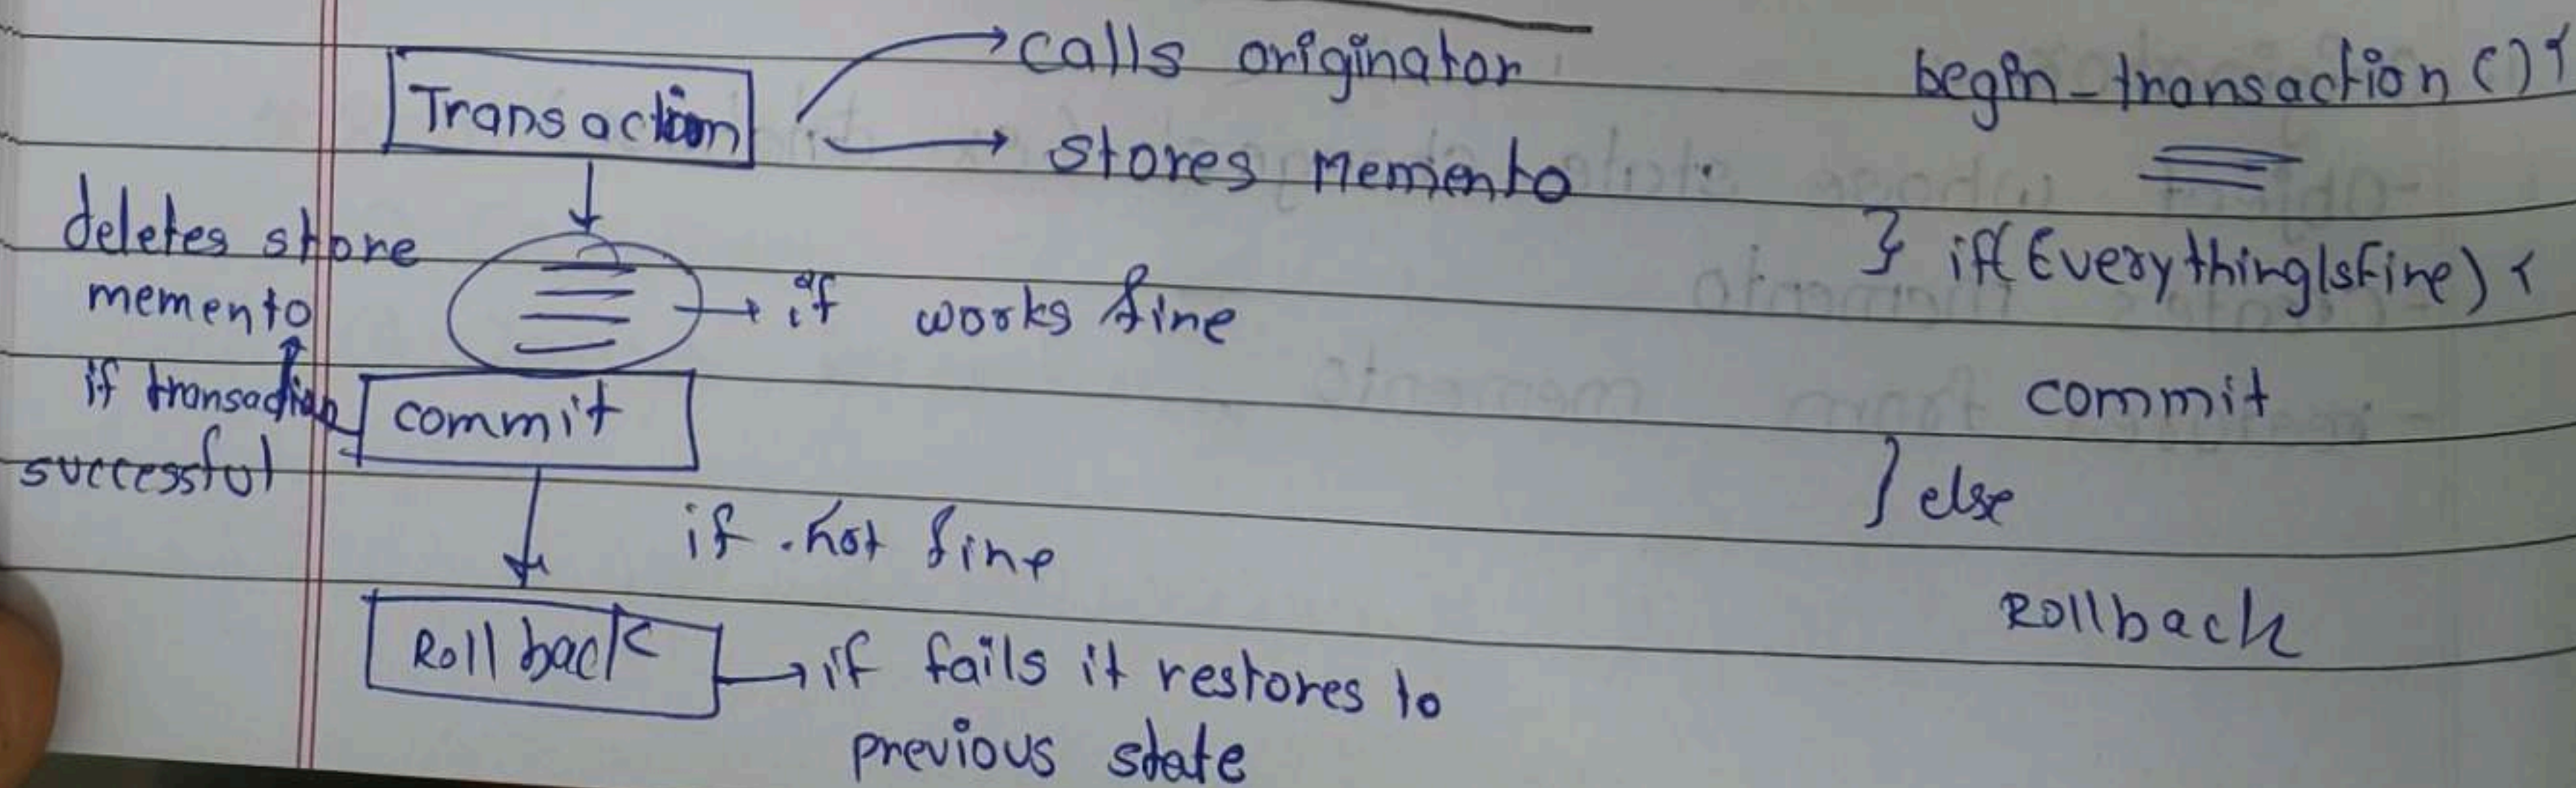 Transaction
calls originator
stores Memento
deletes store
memento
if transaction
successful
if works fine
commit
if not fine
Roll back
if fails it restores to
previous state
begin_transaction () {
} if(EverythingIsFine) {
commit
} else
Rollback